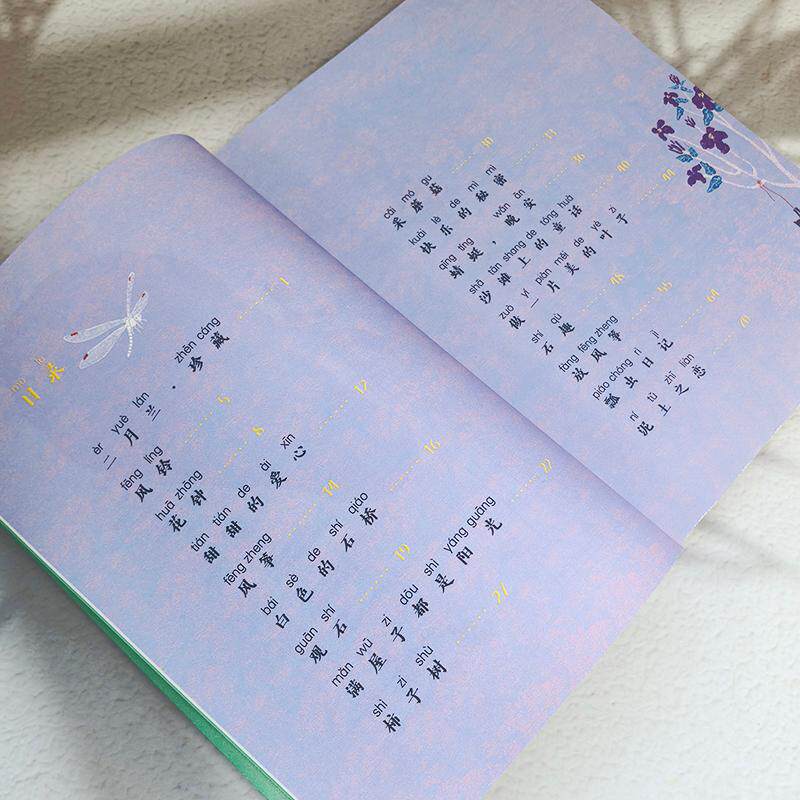 mù lù
目录
èr yuè lán zhēn cáng
二月兰·珍藏 1
fēng líng
风铃 5
huā zhōng
花钟 8
tián tián de ài xīn
甜甜的爱心 12
fēng zheng
风筝 14
bái sè de shí qiáo
白色的石桥 16
guān shí
观石 19
mǎn wū zi dōu shì yáng guāng
满屋子都是阳光 22
shì zi shù
柿子树 27
cǎi mó gu
采蘑菇 30
kuài lè de mì mì
快乐的秘密 33
qīng tíng wǎn ān
蜻蜓，晚安 36
shā tān shang de tóng huà
沙滩上的童话 40
zuò yí piàn měi de yè zi
做一片美的叶子 44
shí qù
石趣 48
fàng fēng zheng
放风筝 55
piáo chóng rì jì
瓢虫日记 64
ní tǔ zhī liàn
泥土之恋 70